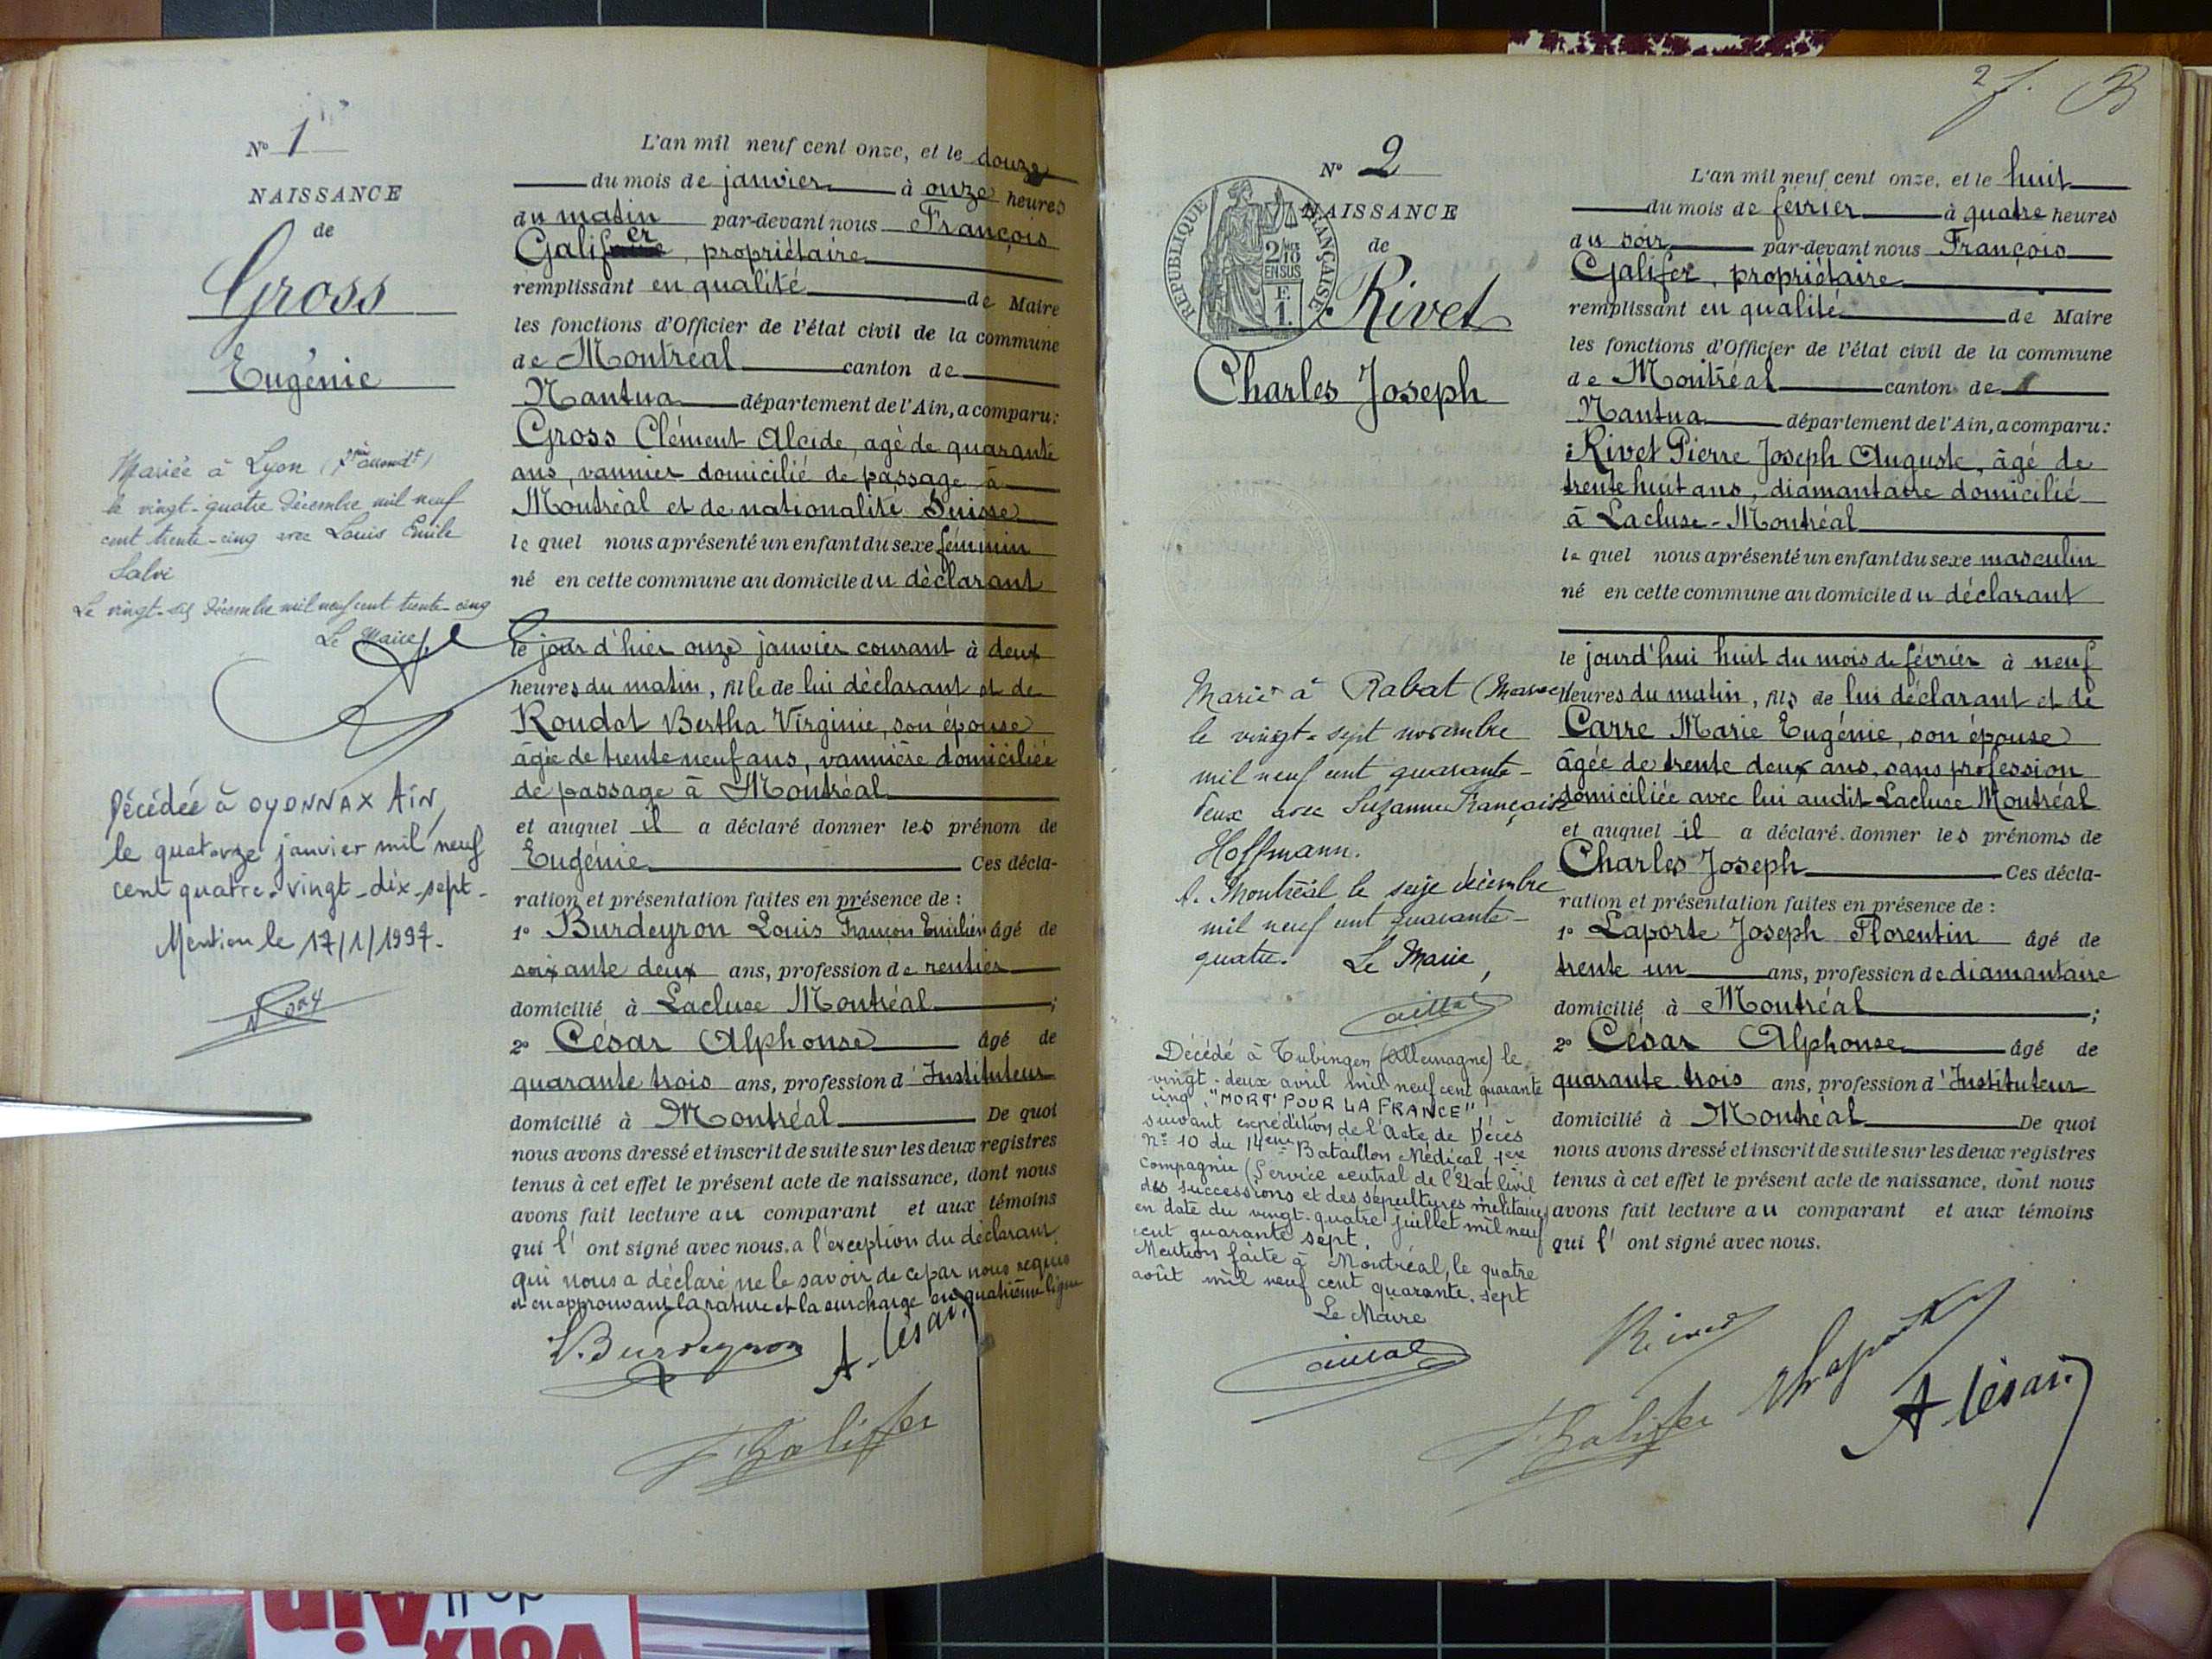 N° 1
NAISSANCE
de
Gross
Eugénie
Mariée à Lyon
le vingt-quatre décembre mil neuf
cent trente-cinq avec Louis Emile
Salvi
Le vingt-six décembre mil neuf cent trente-cinq
Le Maire
Décédée à OYONNAX AIN,
le quatorze janvier mil neuf
cent quatre-vingt-dix-sept-
Mention le 17/1/1997.
L'an mil neuf cent onze, et le douze
du mois de janvier à onze heures
du matin par-devant nous François
Galifer, propriétaire
remplissant en qualité de Maire
les fonctions d'Officier de l'état civil de la commune
de Montréal canton de
Nantua département de l'Ain, a comparu:
Gross Clément Alcide, agé de quarante
ans, vannier domicilié de passage à
Montréal et de nationalité Suisse
le quel nous a présenté un enfant du sexe féminin
né en cette commune au domicile du déclarant
le jour d'hier onze janvier courant à deux
heures du matin, fille de lui déclarant et de
Roudot Bertha Virginie, son épouse
âgée de trente neuf ans, vannière domiciliée
de passage à Montréal
et auquel il a déclaré donner les prénom de
Eugénie Ces décla-
ration et présentation faites en présence de :
1° Burdeyron Louis François Emilien âgé de
soixante deux ans, profession de rentier
domicilié à Lacluse Montréal ;
2° César Alphonse âgé de
quarante trois ans, profession d'Instituteur
domicilié à Montréal De quoi
nous avons dressé et inscrit de suite sur les deux registres
tenus à cet effet le présent acte de naissance, dont nous
avons fait lecture au comparant et aux témoins
qui l' ont signé avec nous, a l'exception du déclarant
qui nous a déclaré ne le savoir de ce par nous requis
et en approuvant la rature et la surcharge en quatrième ligne
L. Burdeyron
A. César
F. Galiffer
2 f.
N° 2
NAISSANCE
de
REPUBLIQUE FRANÇAISE
2/10
EN SUS
Rivet
Charles Joseph
Marié à Rabat (Maroc)
le vingt-sept novembre
mil neuf cent quarante-
deux avec Suzanne Françoise
Hoffmann.
A Montréal le seize décembre
mil neuf cent quarante-
quatre. Le Maire,
Décédé à Tubingen (Allemagne) le
vingt-deux avril mil neuf cent quarante
cinq. "MORT POUR LA FRANCE"
suivant expédition de l'Acte de Décès
N° 10 du 14ème Bataillon Médical 1ere
Compagnie (Service central de l'Etat civil
des successions et des sépultures militaires)
en date du vingt-quatre juillet mil neuf
cent quarante sept.
Mention faite à Montréal, le quatre
août mil neuf cent quarante. sept
Le Maire
L'an mil neuf cent onze, et le huit
du mois de février à quatre heures
du soir par-devant nous François
Galifer, propriétaire
remplissant en qualité de Maire
les fonctions d'Officier de l'état civil de la commune
de Montréal canton de
Nantua département de l'Ain, a comparu:
Rivet Pierre Joseph Auguste, âgé de
trente huit ans, diamantaire domicilié
à Lacluse-Montréal
le quel nous a présenté un enfant du sexe masculin
né en cette commune au domicile du déclarant
le jourd'hui huit du mois de février à neuf
heures du matin, fils de lui déclarant et de
Carre Marie Eugénie, son épouse
âgée de trente deux ans, sans profession
domiciliée avec lui audit Lacluse Montréal
et auquel il a déclaré donner les prénoms de
Charles Joseph Ces décla-
ration et présentation faites en présence de :
1° Laporte Joseph Florentin âgé de
trente un ans, profession de diamantaire
domicilié à Montréal ;
2° César Alphonse âgé de
quarante trois ans, profession d'Instituteur
domicilié à Montréal De quoi
nous avons dressé et inscrit de suite sur les deux registres
tenus à cet effet le présent acte de naissance, dont nous
avons fait lecture au comparant et aux témoins
qui l' ont signé avec nous.
Rivet
F. Galiffer
A César
VOIX
Ain